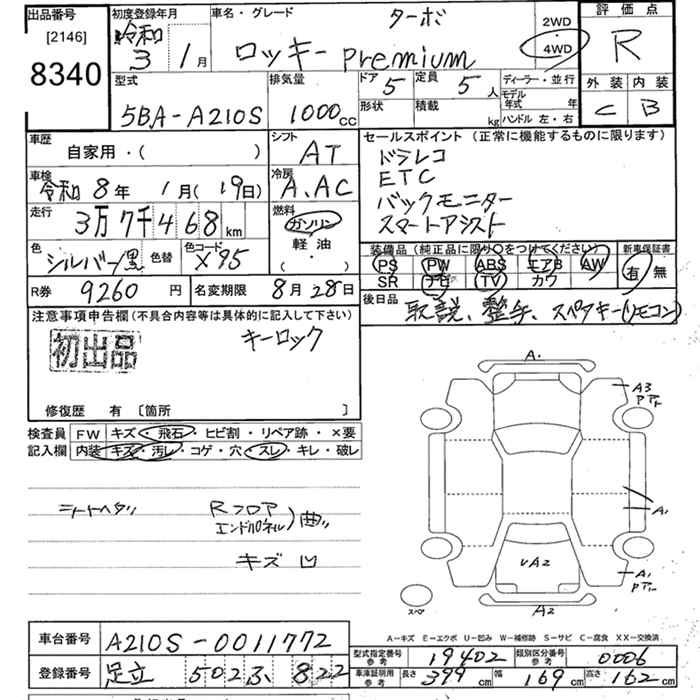 出品番号
[2146]
8340
初度登録年月
令和
3 1月
車名・グレード
ターボ
ロッキー premium
2WD
4WD
評価点
R
外装 内装
C B
型式
5BA-A210S
排気量
1000cc
ドア
5
定員
5人
ディーラー・並行
形状
積載
kg
モデル年式 年
ハンドル 左・右
車歴
自家用・( )
シフト
AT
セールスポイント(正常に機能するものに限ります)
ドラレコ
ETC
バックモニター
スマートアシスト
車検
令和8年 1月(19日)
冷房
A.AC
走行
3万7千468km
燃料
ガソリン
軽油
( ・ )
色
シルバー/黒
色替
色コード
X95
装備品(純正品に限り○をつけてください)
新車保証書
PS PW ABS エアB AW
SR ナビ TV カワ
有 無
R券
9260円
名変期限
8月28日
後日品
取説、整手、スペアキー(リモコン)
注意事項申告欄(不具合内容等は具体的に記入して下さい)
初出品
キーロック
修復歴 有 [箇所 ]
検査員記入欄
FW キズ・飛石・ヒビ割・リペア跡・×要
内装 キズ・汚レ・コゲ・穴・スレ・キレ・破レ
シートヘタリ
Rフロア
エンドパネル)曲り
キズ 凹
A.
A3
Pアト
A1
UA2
A1
Pアト
A2
スペア
A−キズ E−エクボ U−凹み W−補修跡 S−サビ C−腐食 XX−交換済
車台番号
A210S-0011772
登録番号
足立 502 ろ 822
型式指定番号
参考
19402
類別区分番号
参考
0006
車庫証明用
参考
長さ
399cm
幅
169cm
高さ
162cm